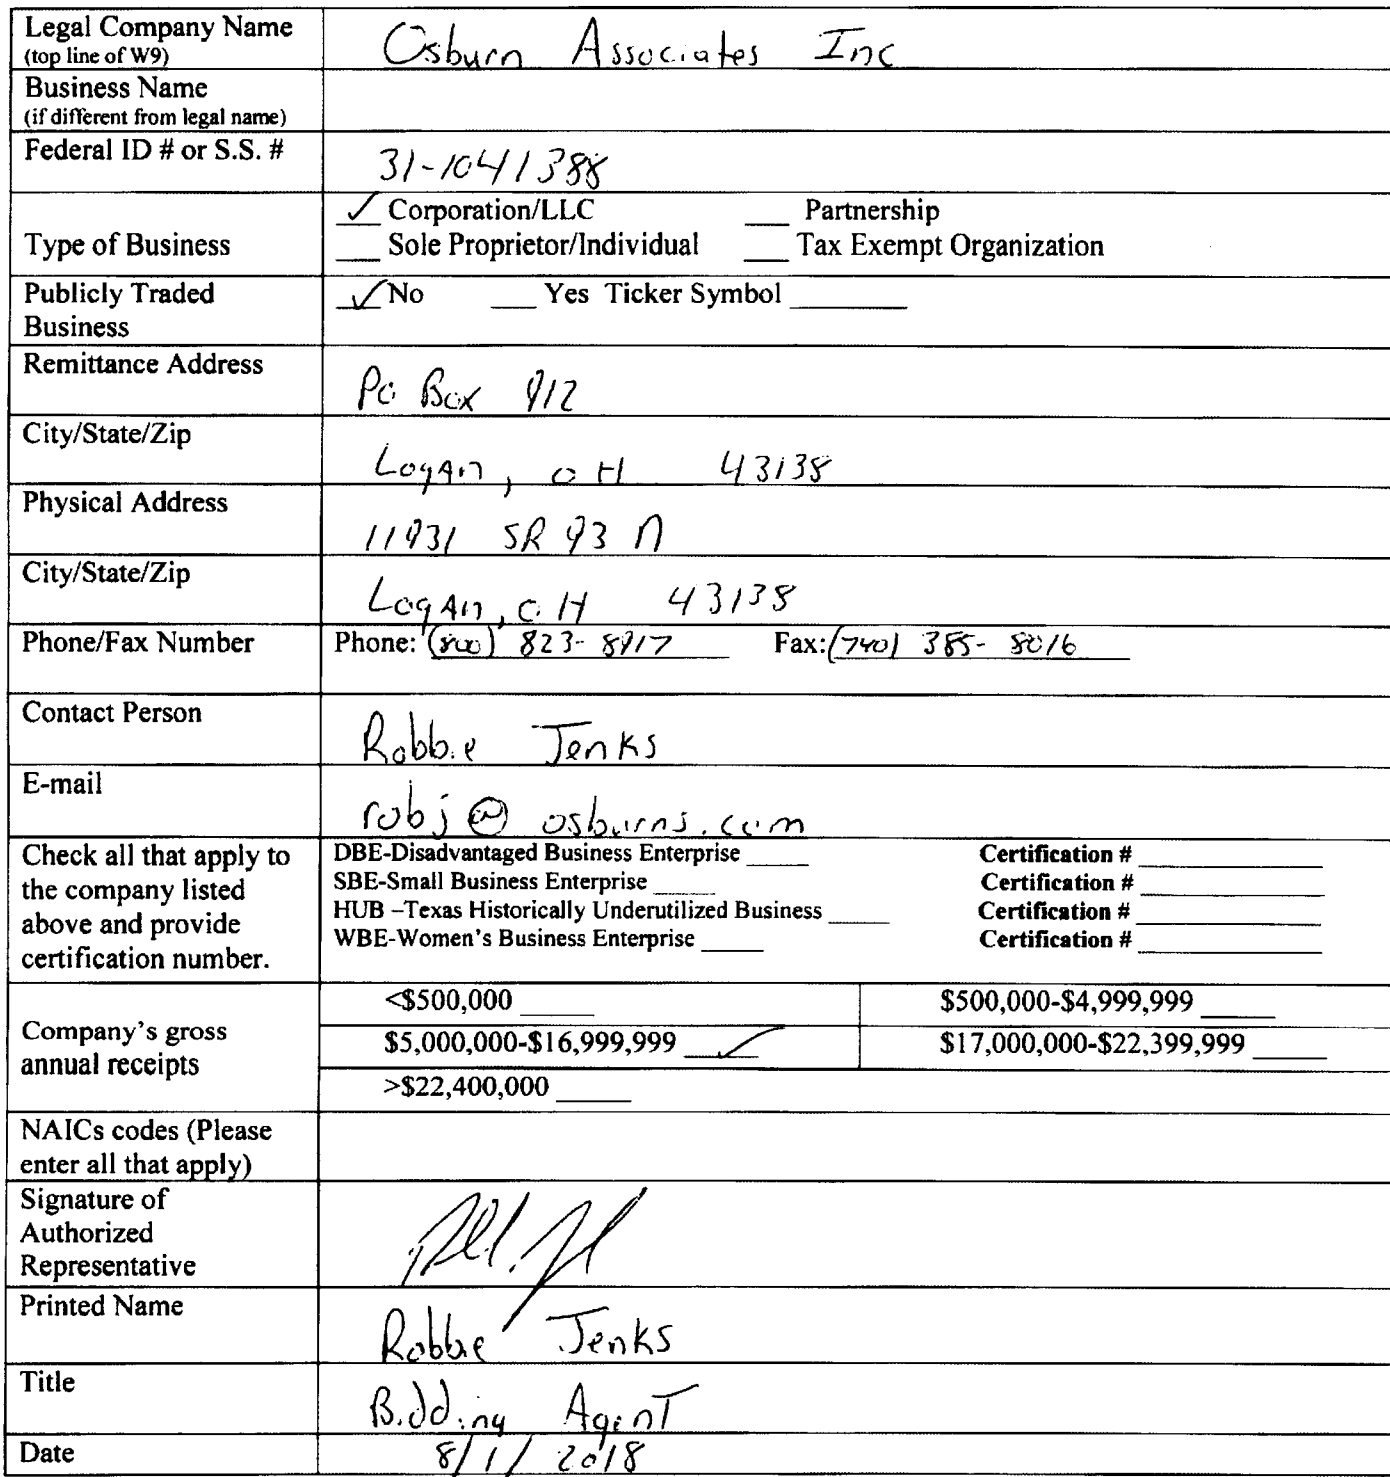 Legal Company Name
(top line of W9)
Osburn Associates Inc
Business Name
(if different from legal name)
Federal ID # or S.S. #
31-1041388
Type of Business
✓ Corporation/LLC ___ Partnership
___ Sole Proprietor/Individual ___ Tax Exempt Organization
Publicly Traded
Business
✓ No ___ Yes Ticker Symbol ________
Remittance Address
Po Box 912
City/State/Zip
Logan, OH 43138
Physical Address
11931 SR 93 N
City/State/Zip
Logan, OH 43138
Phone/Fax Number
Phone: (800) 823-8917 Fax: (740) 385-8016
Contact Person
Robbie Jenks
E-mail
robj@osburns.com
Check all that apply to
the company listed
above and provide
certification number.
DBE-Disadvantaged Business Enterprise _____ Certification # __________
SBE-Small Business Enterprise _____ Certification # __________
HUB –Texas Historically Underutilized Business _____ Certification # __________
WBE-Women's Business Enterprise _____ Certification # __________
Company's gross
annual receipts
<$500,000 _____ $500,000-$4,999,999 _____
$5,000,000-$16,999,999 ✓ $17,000,000-$22,399,999 _____
>$22,400,000 _____
NAICs codes (Please
enter all that apply)
Signature of
Authorized
Representative
Printed Name
Robbie Jenks
Title
Bidding Agent
Date
8/1/2018